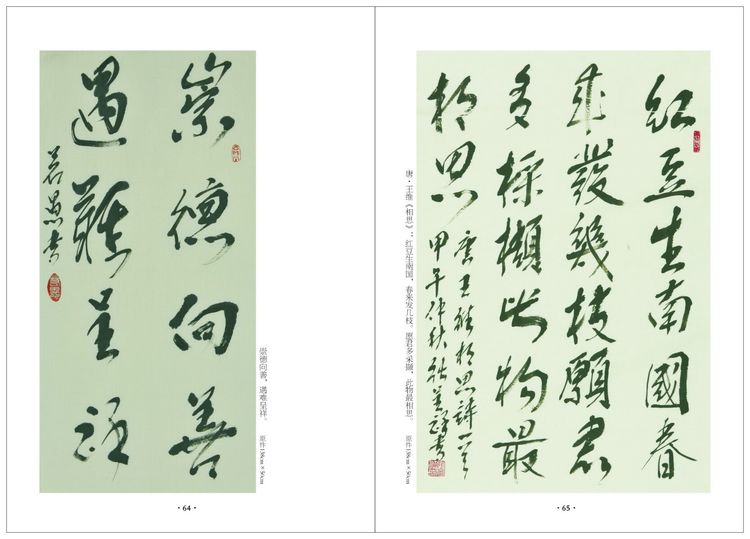 崇德向善
遇难呈祥
若愚书
崇德向善，遇难呈祥。 原件138cm×50cm
·64·
紅豆生南國春
来發幾枝願君
多採擷此物最
相思
唐王維相思詩一首
甲午仲秋
唐·王维《相思》：红豆生南国，春来发几枝。愿君多采撷，此物最相思。 原件138cm×50cm
·65·